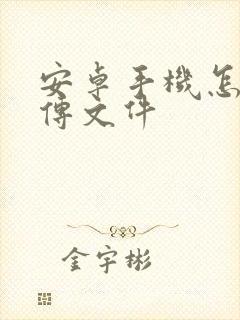 安卓手機怎
傳文件
金宇彬